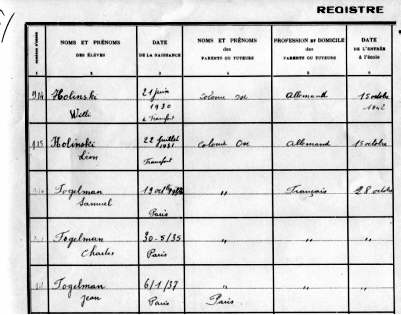 REGISTRE
NOMS ET PRÉNOMS
DES ÉLÈVES
DATE
DE LA NAISSANCE
NOMS ET PRÉNOMS
des
PARENTS OU TUTEURS
PROFESSION ET DOMICILE
des
PARENTS OU TUTEURS
DATE
DE L'ENTRÉE
à l'école
1 2 3 4 5 6
914 Holinski 21 juin Colonie Ose Allemand 15 octobre
Willi 1930 1942
à Francfort
915 Holinski 22 juillet Colonie Ose Allemand 15 octobre
Léon 1931
Francfort
Fogelman 19 octobre " Français 28 octobre
Samuel
Paris
Fogelman 30-5/35 " " "
Charles Paris
Fogelman 6/1/37 " "
Jean Paris Paris